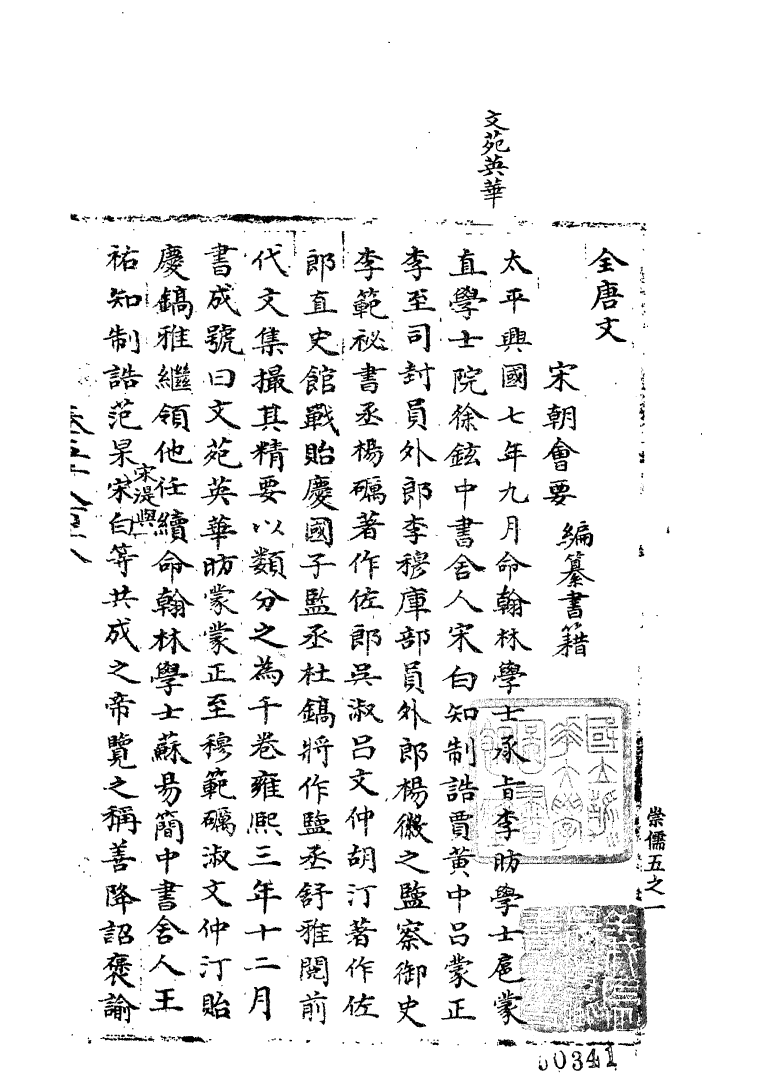 文苑英華
全唐文
宋朝會要
編纂書籍
太平興國七年九月命翰林學士承旨李昉學士扈蒙
直學士院徐鉉中書舍人宋白知制誥賈黃中呂蒙正
李至司封員外郎李穆庫部員外郎楊徽之監察御史
李範祕書丞楊礪著作佐郎吳淑呂文仲胡汀著作佐
郎直史館戰貽慶國子監丞杜鎬將作監丞舒雅閱前
代文集撮其精要以類分之為千卷雍熙三年十二月
書成號曰文苑英華昉蒙蒙正至穆範礪淑文仲汀貽
慶鎬雅繼領他任續命翰林學士蘇易簡中書舍人王
祐知制誥范杲宋白等共成之帝覽之稱善降詔褒諭
宋湜與
崇儒五之一
00341